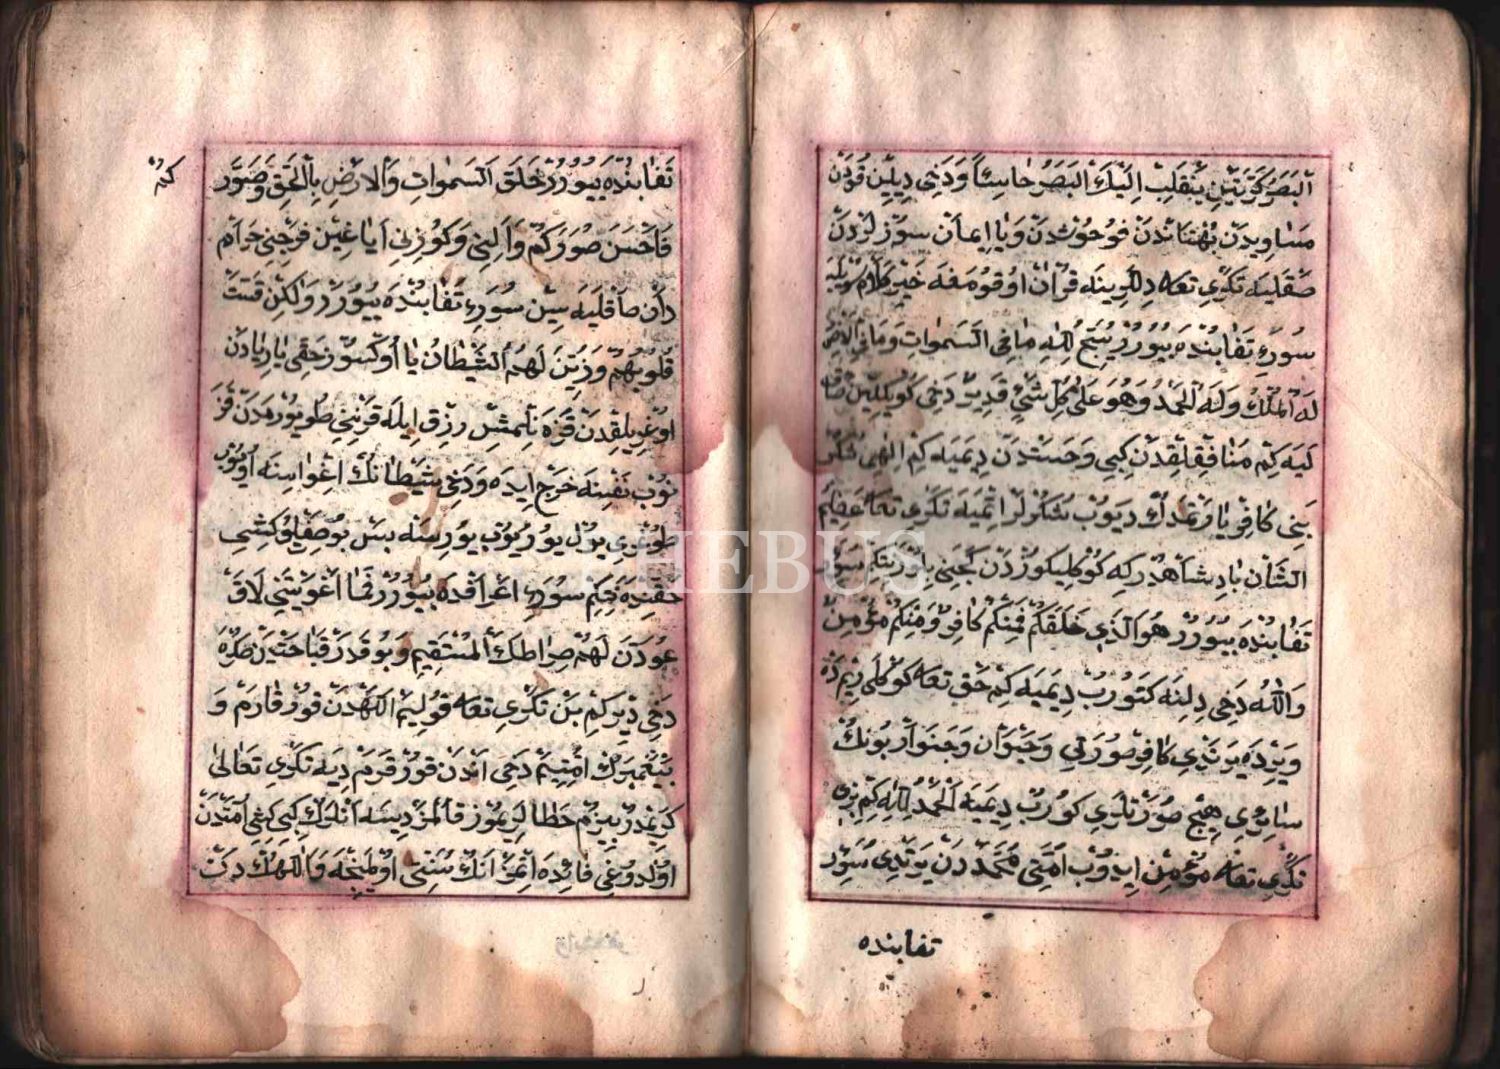 الْبَصَرَ كَرَّتَيْنِ يَنْقَلِبْ اِلَيْكَ الْبَصَرُ خَاسِئاً وَدَخِي دِيلِينْ قُودَنْ
مَسَاوِيدَنْ بُهْتَانْدَنْ فُوحُوشْدَنْ وَيَا اِيمَانْ سُوزْلَرْدَنْ
صَقْلَيَه تَكْرِي تعه دِلَرِينَه قُرْاٰنْ اوُقُومَغَه خَيْر كَلَام سُويْلَيَه
سُورَۀِ تَغَابُنْدَه بُيُورُرْ يُسَبِّحُ لِلّٰهِ مَا فِي السَّمٰوَاتِ وَمَا فِي الْاَرْضِ
لَهُ الْمُلْكُ وَلَهُ الْحَمْدُ وَهُوَ عَلٰى كُلِّ شَيْئٍ قَدِيرٌ دَخِي كُوكْلِينْ صَا
كَيَه كِمْ مُنَافِقْلِقْدَنْ كِبِي وَحَسَدْدَنْ دِيمَيَه كِمْ اِلٰهِي شُكُرْ
بَنِي كَافِر يَارَتْمَدِكْ دِيوُبْ شُكُرْلَرْ اِتْمَيَه تَكْرِي تَعَه عَظِيمُ
الشَّانْ پَادِشَاهْدُرْ كِه كُوكْلِيكُوزْدَنْ كَچَنِي بِلُورْ نِتَكِمْ سُورَۀِ
تَغَابُنْدَه بُيُورُرْ هُوَ الَّذِي خَلَقَكُمْ فَمِنْكُمْ كَافِرٌ وَمِنْكُمْ مُؤْمِنٌ
وَاللّٰهُ دَخِي دِلِنَه كَتُورُبْ دِيمَيَه كِمْ حَقْ تعه كُوكْلَرِي يَرْدَه
وَيَرْدَه يَرَتْدِي كَافِر صُورَتِي وَحَيْوَان وَجَنَوَار بُونُكْ
سَائِرِي هِيچْ صُورَتْلَرِي كُورُبْ دِيمَيَه اَلْحَمْدُ لِلّٰهِ كِمْ بِزِي
تَكْرِي تعه مُؤْمِنْ اِيدُوبْ اُمَّتِ مُحَمَّدْدَنْ يَرَتْدِي سُورَۀِ
تغابنده
تَغَابُنْدَه بُيُورُرْ خَلَقَ السَّمٰوَاتِ وَالْاَرْضِ بِالْحَقِّ وَصَوَّرَ
فَاَحْسَنَ صُوَرَكُمْ وَاَلِنِي وَكُوزِنِي اَيَاغِيْن فَرْجِنِي حَرَامْ
دَانْ صَاقْلَيَه سِينْ سُورَۀِ تَغَابُنْدَه بُيُورُرْ وَلٰكِنْ قَسَتْ
قُلُوبُهُمْ وَزَيَّنَ لَهُمُ الشَّيْطَانُ يَا اُوكْسُوزْ حَقِي يَارِيَادَنْ
اوُغْرِيلِقْدَنْ قَزَنِلْمِشِ رِزْقِ اِيلَه قَرْنِنِي طُويُورْمَدَنْ قَزَ
نُوبْ نَفْسِنَه خَرْج اِيدَه وَدَخِي شَيْطَانُكْ اِغْوَاسِنَه اُويُوبْ
طُوغْرِي يُولْ يُورُيُوبْ يُورِسَه بَسْ بُو صِفَتْلُو كِشِي
حَقِنْدَه كِمْ سُورَۀِ اَعْرَافْدَه بُيُورُرْ فَبِمَا اَغْوَيْتَنِي لَاَقْ
عُودَنَّ لَهُمْ صِرَاطَكَ الْمُسْتَقِيمَ وَبُو قَدَرْ قَبَاحَتْلَرْدَه
دَخِي دِيرْ كِمْ بَنْ تَكْرِي تعه قُولِيَمْ اللّٰهْدَنْ قُورْقَارَمْ وَ
پَيْغَمْبَرُكْ اُمَّتِيَمْ دَخِي اَنْدَنْ قُورْقَرَمْ دِيَه تَكْرِي تَعَالٰى
كَرِيمْدُرْ بِيزُمْ خَطَالَرِمُوزْ قَالْمَزْ دِيسَه اَنْلَرُكْ كِبِي كِشِي اُمَّتْدَنْ
اوُلْدُوغِي فَائِدَه اِتْمَزْ اَنُكْ سُنَّتِي اوُلْمَيِنْجَه وَاللّٰهُكْ